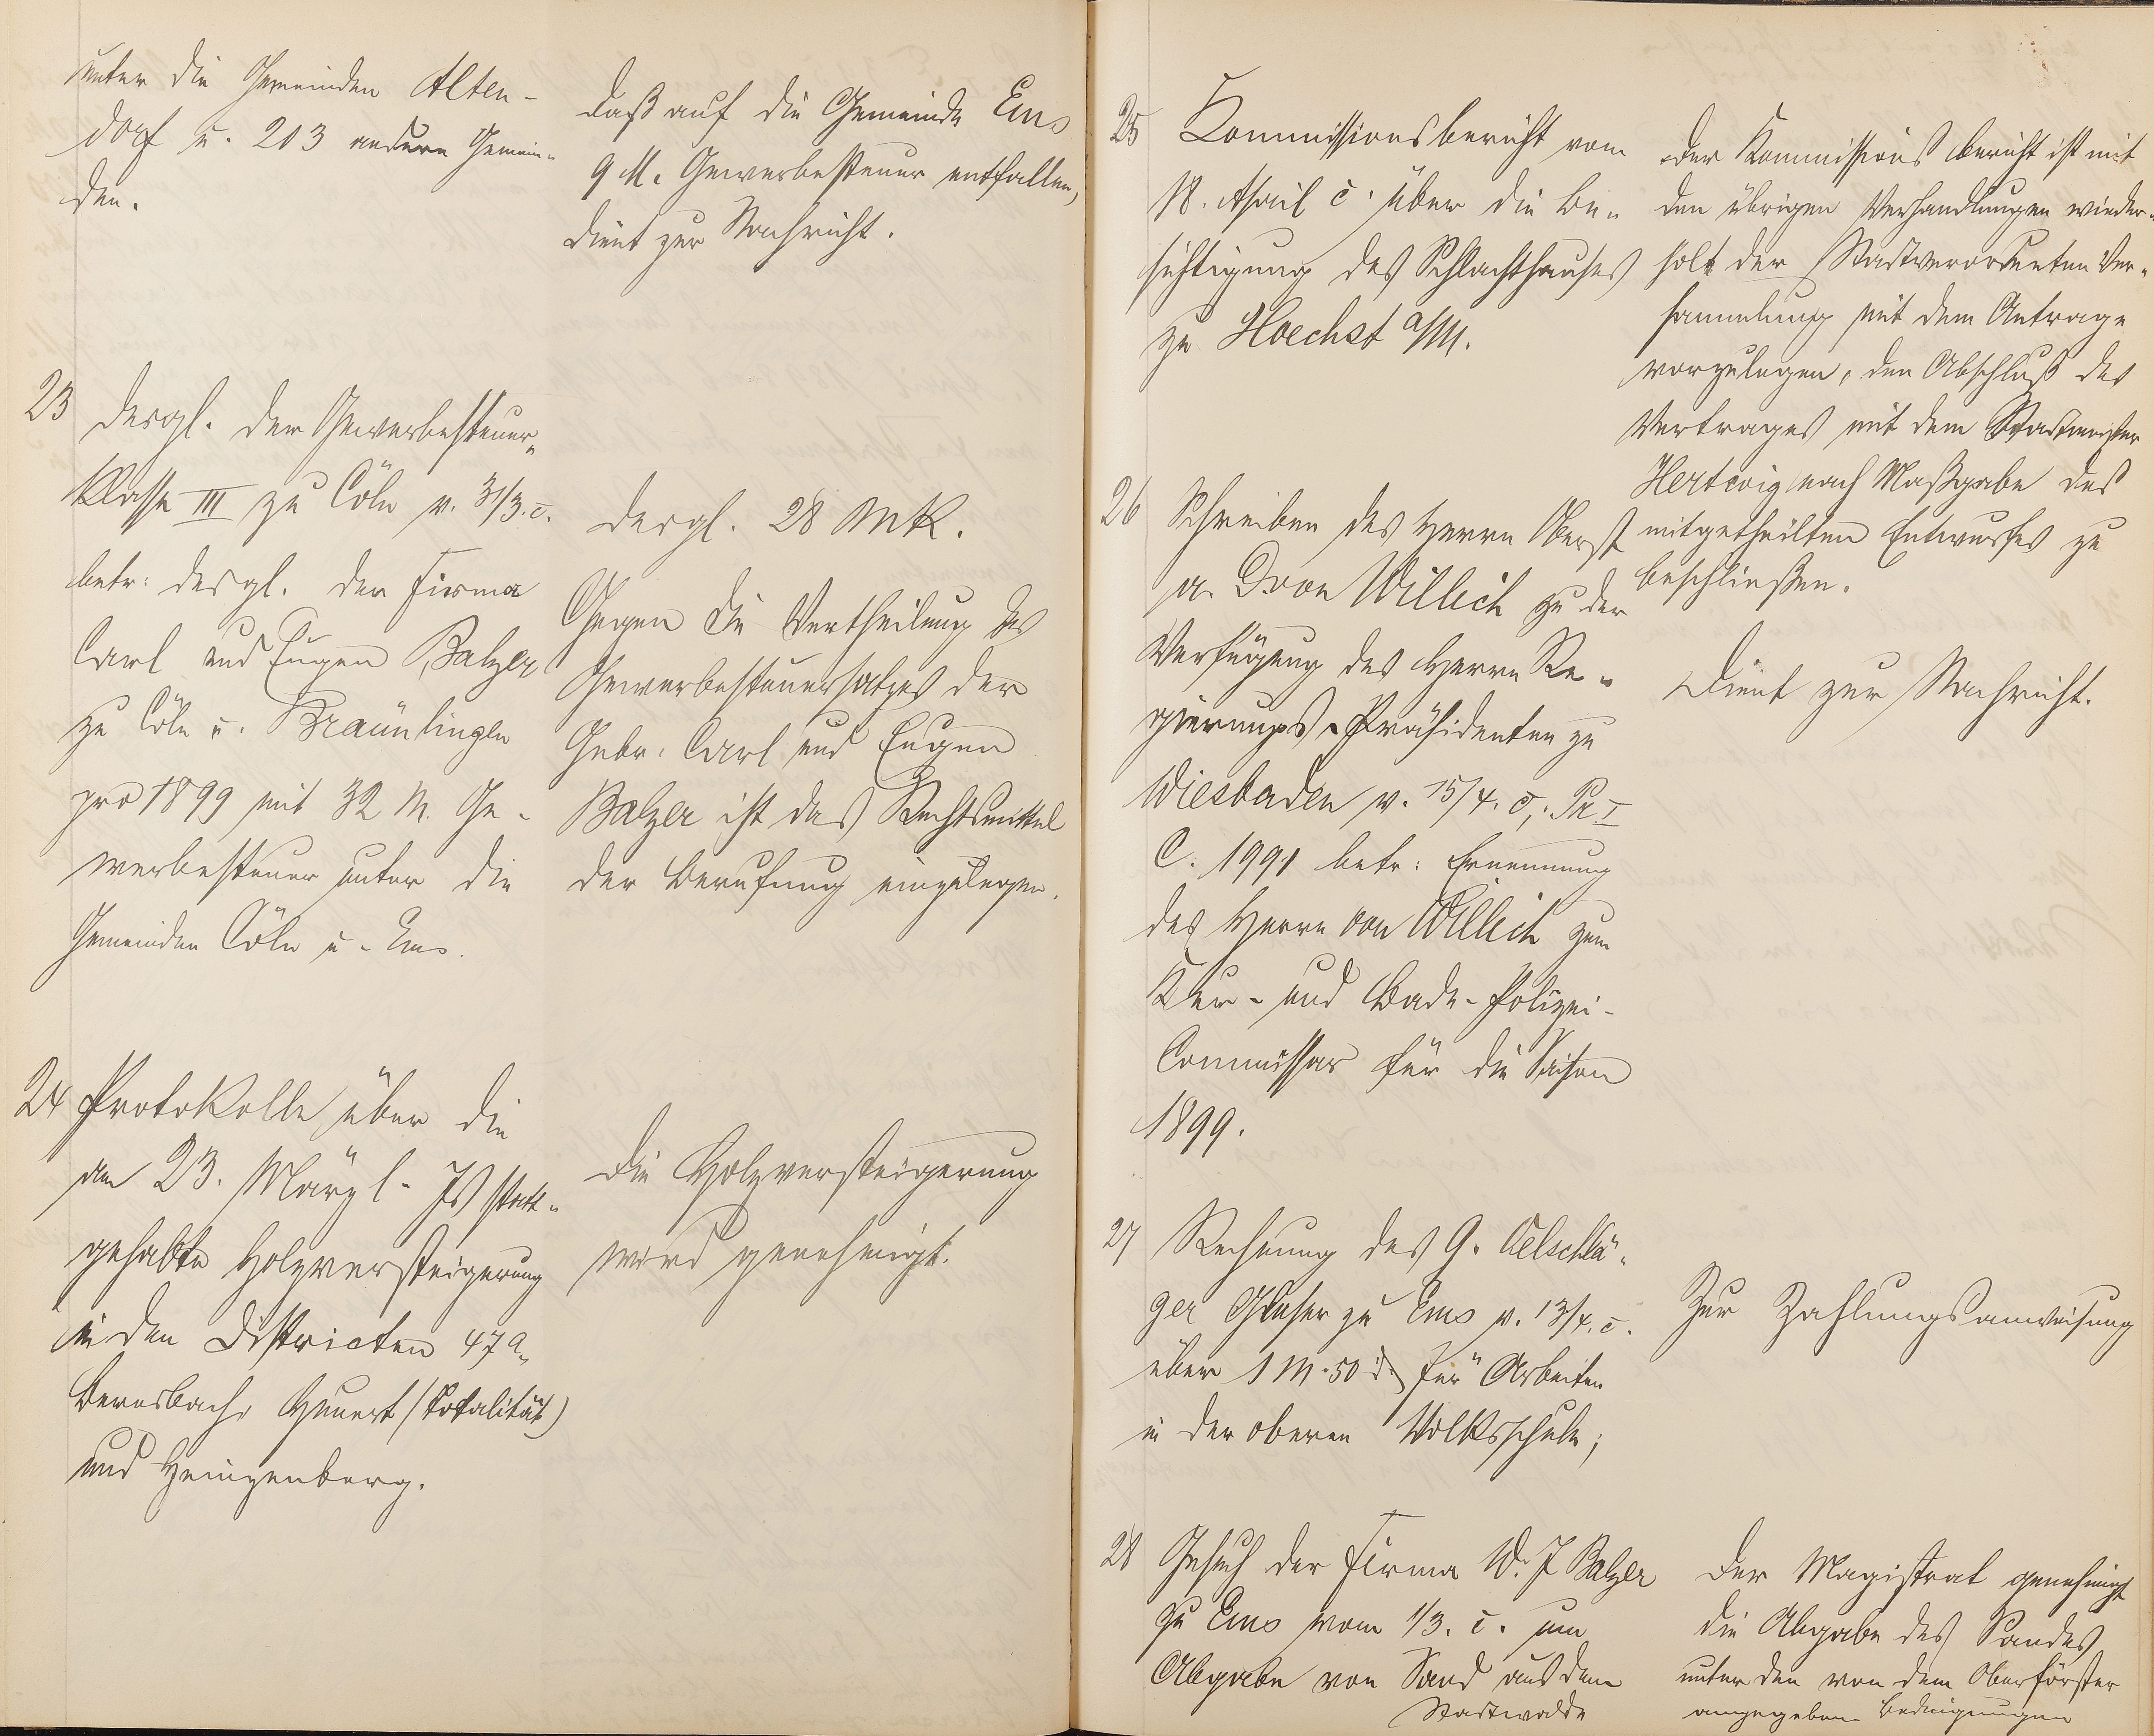 unter die Gemeinden Alten-
dorf u. 203 andere Gemein-
den.
daß auf die Gemeinde Ems
9 M. Gewerbesteuer entfallen,
dient zur Nachricht.
23 desgl. der Gewerbesteuer-
Klasse III zu Cöln v. 31/3. c.
betr: desgl. der Firma
Carl und Eugen Balzer
zu Cöln u. Bräunlingen
pro 1899 mit 32 M. Ge-
werbesteuer unter die
Gemeinden Cöln u. Ems.
desgl. 28 MK.
Gegen die Vertheilung des
Gewerbesteuersatzes der
Gebr. Carl und Eugen
Balzer ist das Rechtsmittel
der Berufung einzulegen.
24 Protokolle über die
am 23. März l. Js statt-
gehabte Holzversteigerung
in den Districten 47a,
Bernsbach, Hunert (Totalität)
und Heinzenberg.
Die Holzversteigerung
wird genehmigt.
25 Kommissionsbericht vom
18. April c. über die Be-
sichtigung des Schlachthauses
zu Hoechst a/M.
Der Kommissionsbericht ist mit
den übrigen Verhandlungen wieder-
holt der Stadtverordneten Ver-
sammlung mit dem Antrage
vorzulegen, den Abschluß des
Vertrages mit dem
Hertwig nach Maßgabe des
mitgetheilten Entwurfes zu
beschließen.
26 Schreiben des Herrn Oberst
a. D von Willich zu der
Verfügung des Herrn Re-
gierungs-Präsidenten zu
Wiesbaden v. 15/4. c, Pr I
C. 1991 betr: Ernennung
des Herrn von Willich zum
Kur- und Bade-Polizei-
Commissar für die Saison
1899.
Dient zur Nachricht.
27 Rechnung des G. Oelschlä-
ger Glaser zu Ems v. 13/4. c.
über 1 M. 50 d. für Arbeiten
in der oberen Volksschule;
Zur Zahlungsanweisung
28 Gesuch der Firma W. J Balzer
zu Ems vom 1/3. c. um
Abgabe von Sand aus dem
Stadtwalde
Der Magistrat genehmigt
die Abgabe des Sandes
unter den von dem Oberförster
angegebenen Bedingungen